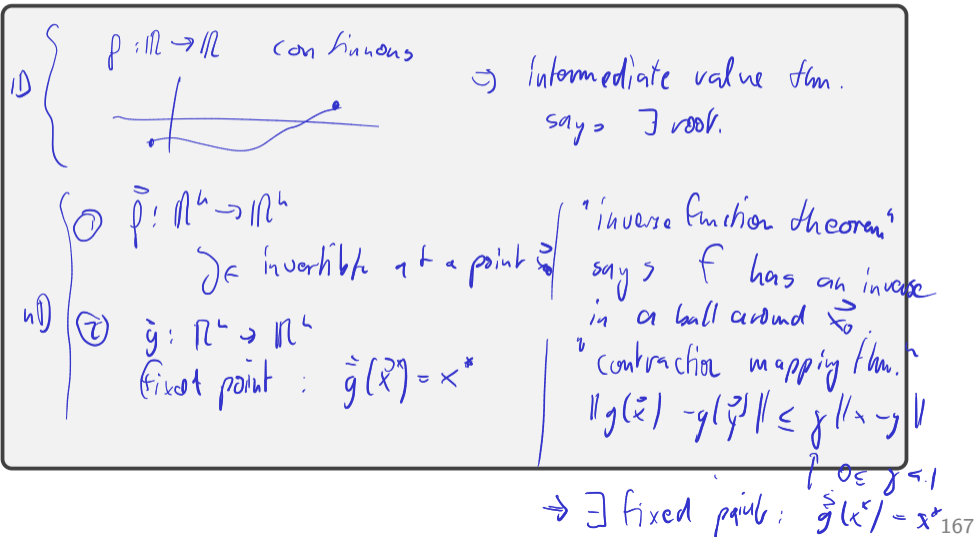 1D
f : ℝ → ℝ continuous
⇒ intermediate value thm.
says ∃ root.
nD
① f⃗ : ℝⁿ → ℝⁿ
J_f invertible at a point x⃗₀
"inverse function theorem"
says f has an inverse
in a ball around x⃗₀.
② g⃗ : ℝⁿ → ℝⁿ
fixed point : g⃗(x⃗*) = x*
"contraction mapping thm."
‖g(x⃗) - g(y⃗)‖ ≤ γ ‖x - y‖
↑ 0 ≤ γ < 1
→ ∃ fixed point : g⃗(x*) = x*
167